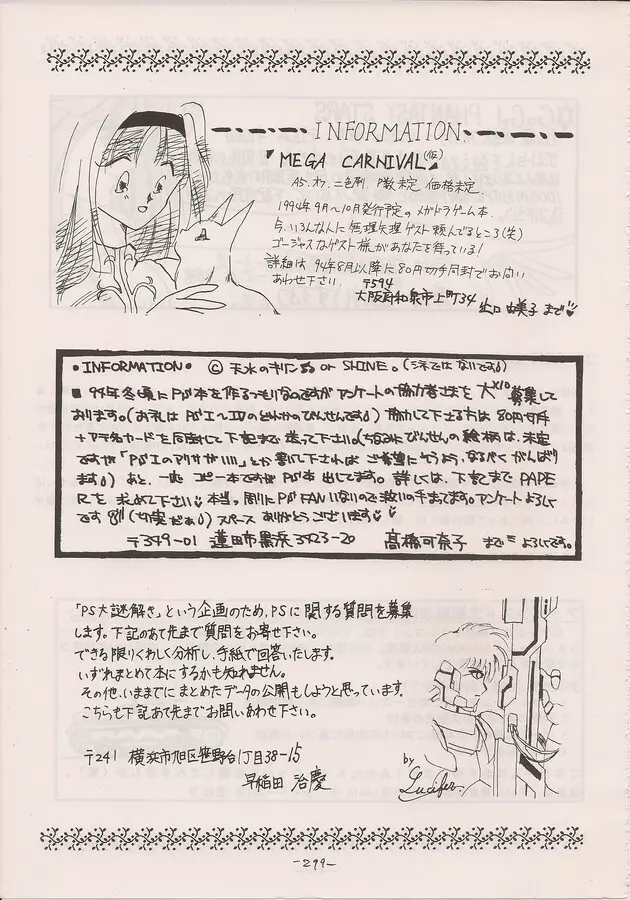 INFORMATION.
「MEGA CARNIVAL(仮)」
A5.オフ.二色刷 P数未定 価格未定.
1994年9月〜10月発行予定のメガドラゲーム本
今、いろんな人に無理矢理ゲスト頼んでるところ(笑)
ゴージャスなゲスト様があなたを待っている!
詳細は、94年8月以降に80円切手同封でお問い
あわせ下さい. 〒594
大阪府和泉市上町34 出口由美子まで
•INFORMATION• © 天水のキリン or SHINE。(シネではないです)
■ 94年冬頃にPS本を作るつもりなのですがアンケートの協力者さまを大×10募集して
おります。(お礼はPSI〜IVのどれかのびんせんです)協力して下さる方は80円切手
+アテ名カードを同封にて下記まで送って下さい。(ちなみにびんせんの絵柄は、未定
ですが「PSIのアリサがいい」とか書いて下されば ご希望にそうよう、なるべくがんばり
ます)あと、一応コピー本ですがPS本出してます。詳しくは、下記までPAPE
Rを求めて下さい 本当。周りにPS FANいないので救いの手まってます。アンケートよろしく
です (切実だぁ) スペース ありがとうございます
〒349-01 蓮田市黒浜3423-20 髙橋可奈子 まで よろしくです。
「PS大謎解き」という企画のため、PSに関する質問を募集
します。下記のあて先まで質問をお寄せ下さい。
できる限りくわしく分析し、手紙で回答いたします。
いずれまとめて本にするかも知れません。
その他、いままでにまとめたデータの公開もしようと思っています。
こちらも下記あて先までお問いあわせ下さい。
〒241 横浜市旭区笹野台1丁目38-15
早稲田 治慶
by Lucifer.
-299-